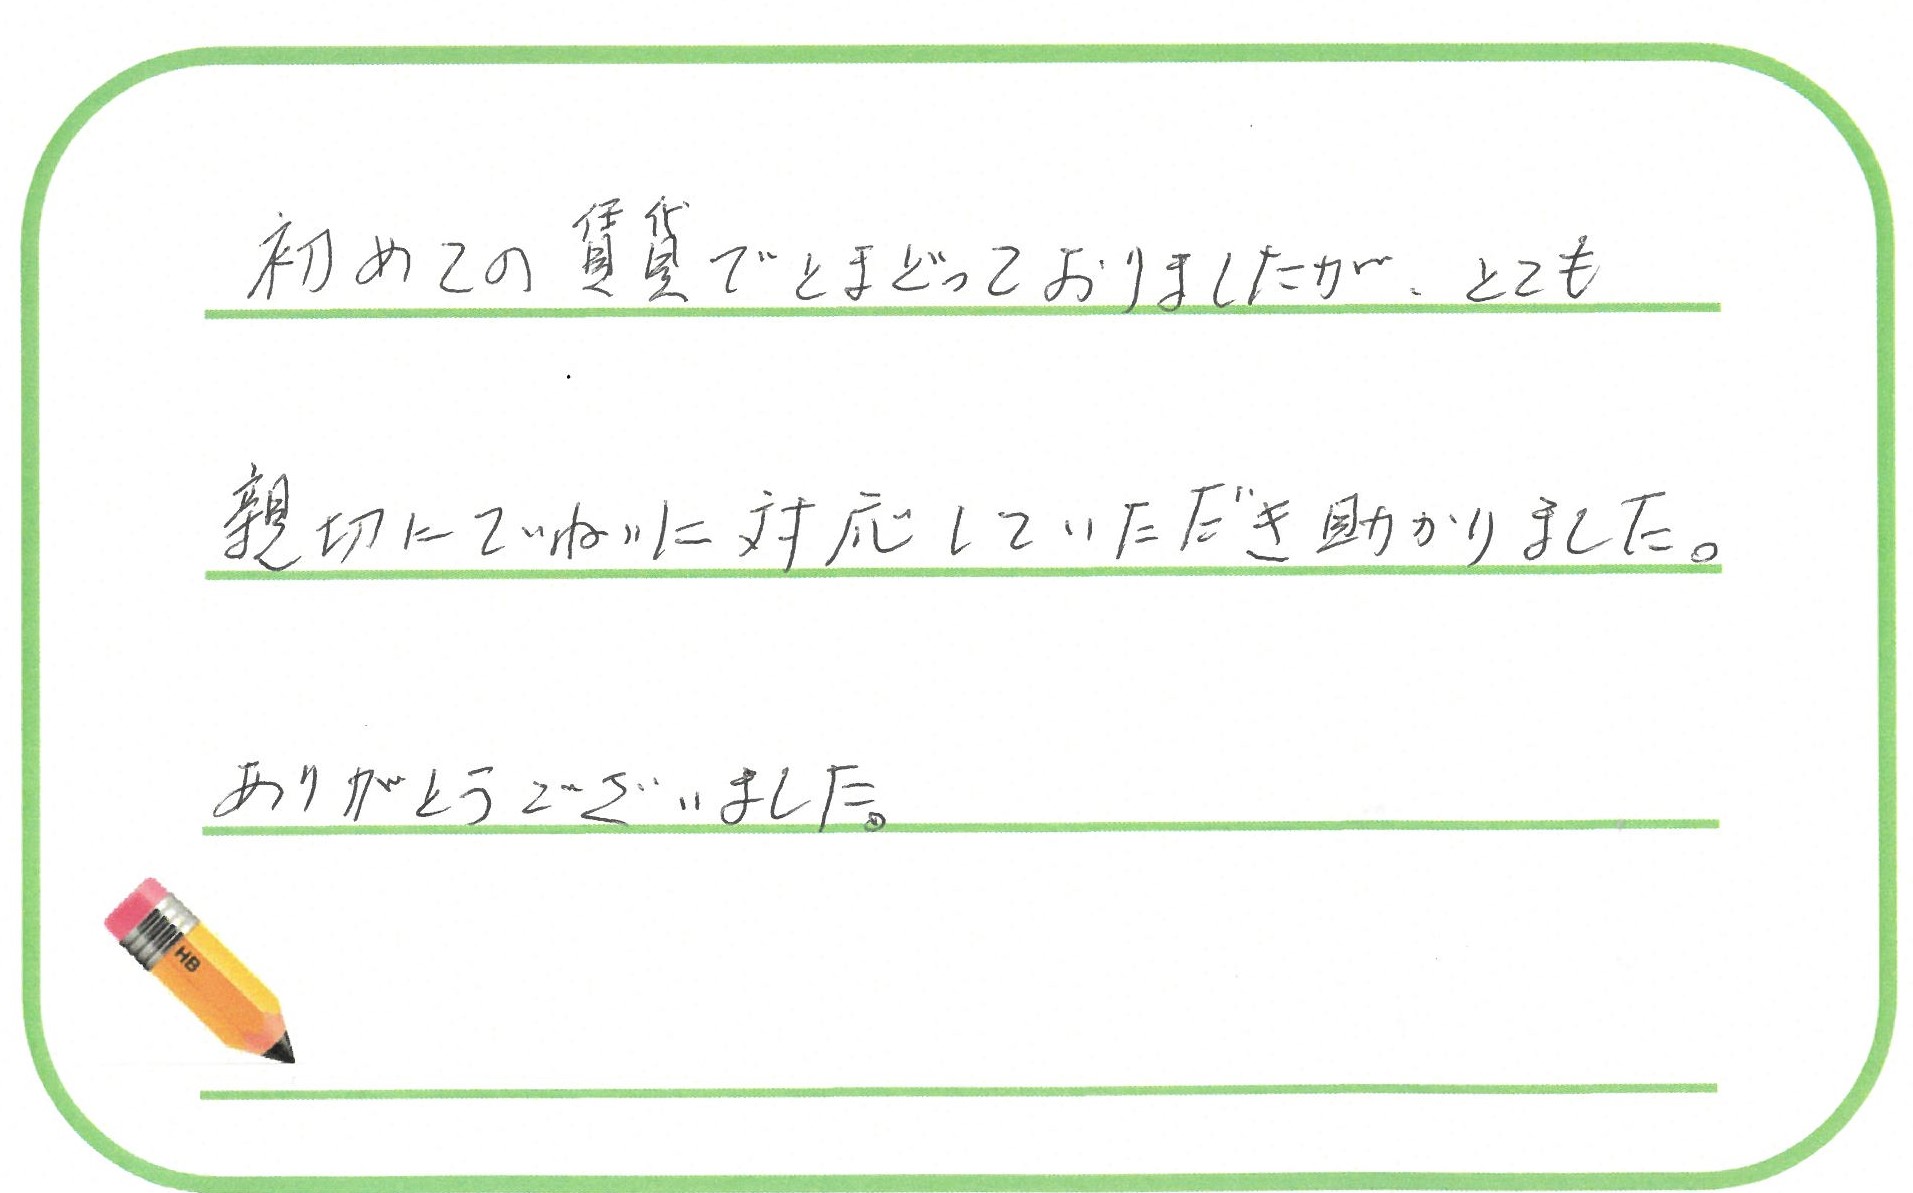 初めての賃貸でとまどっておりましたが、とても
親切にていねいに対応していただき助かりました。
ありがとうございました。
HB